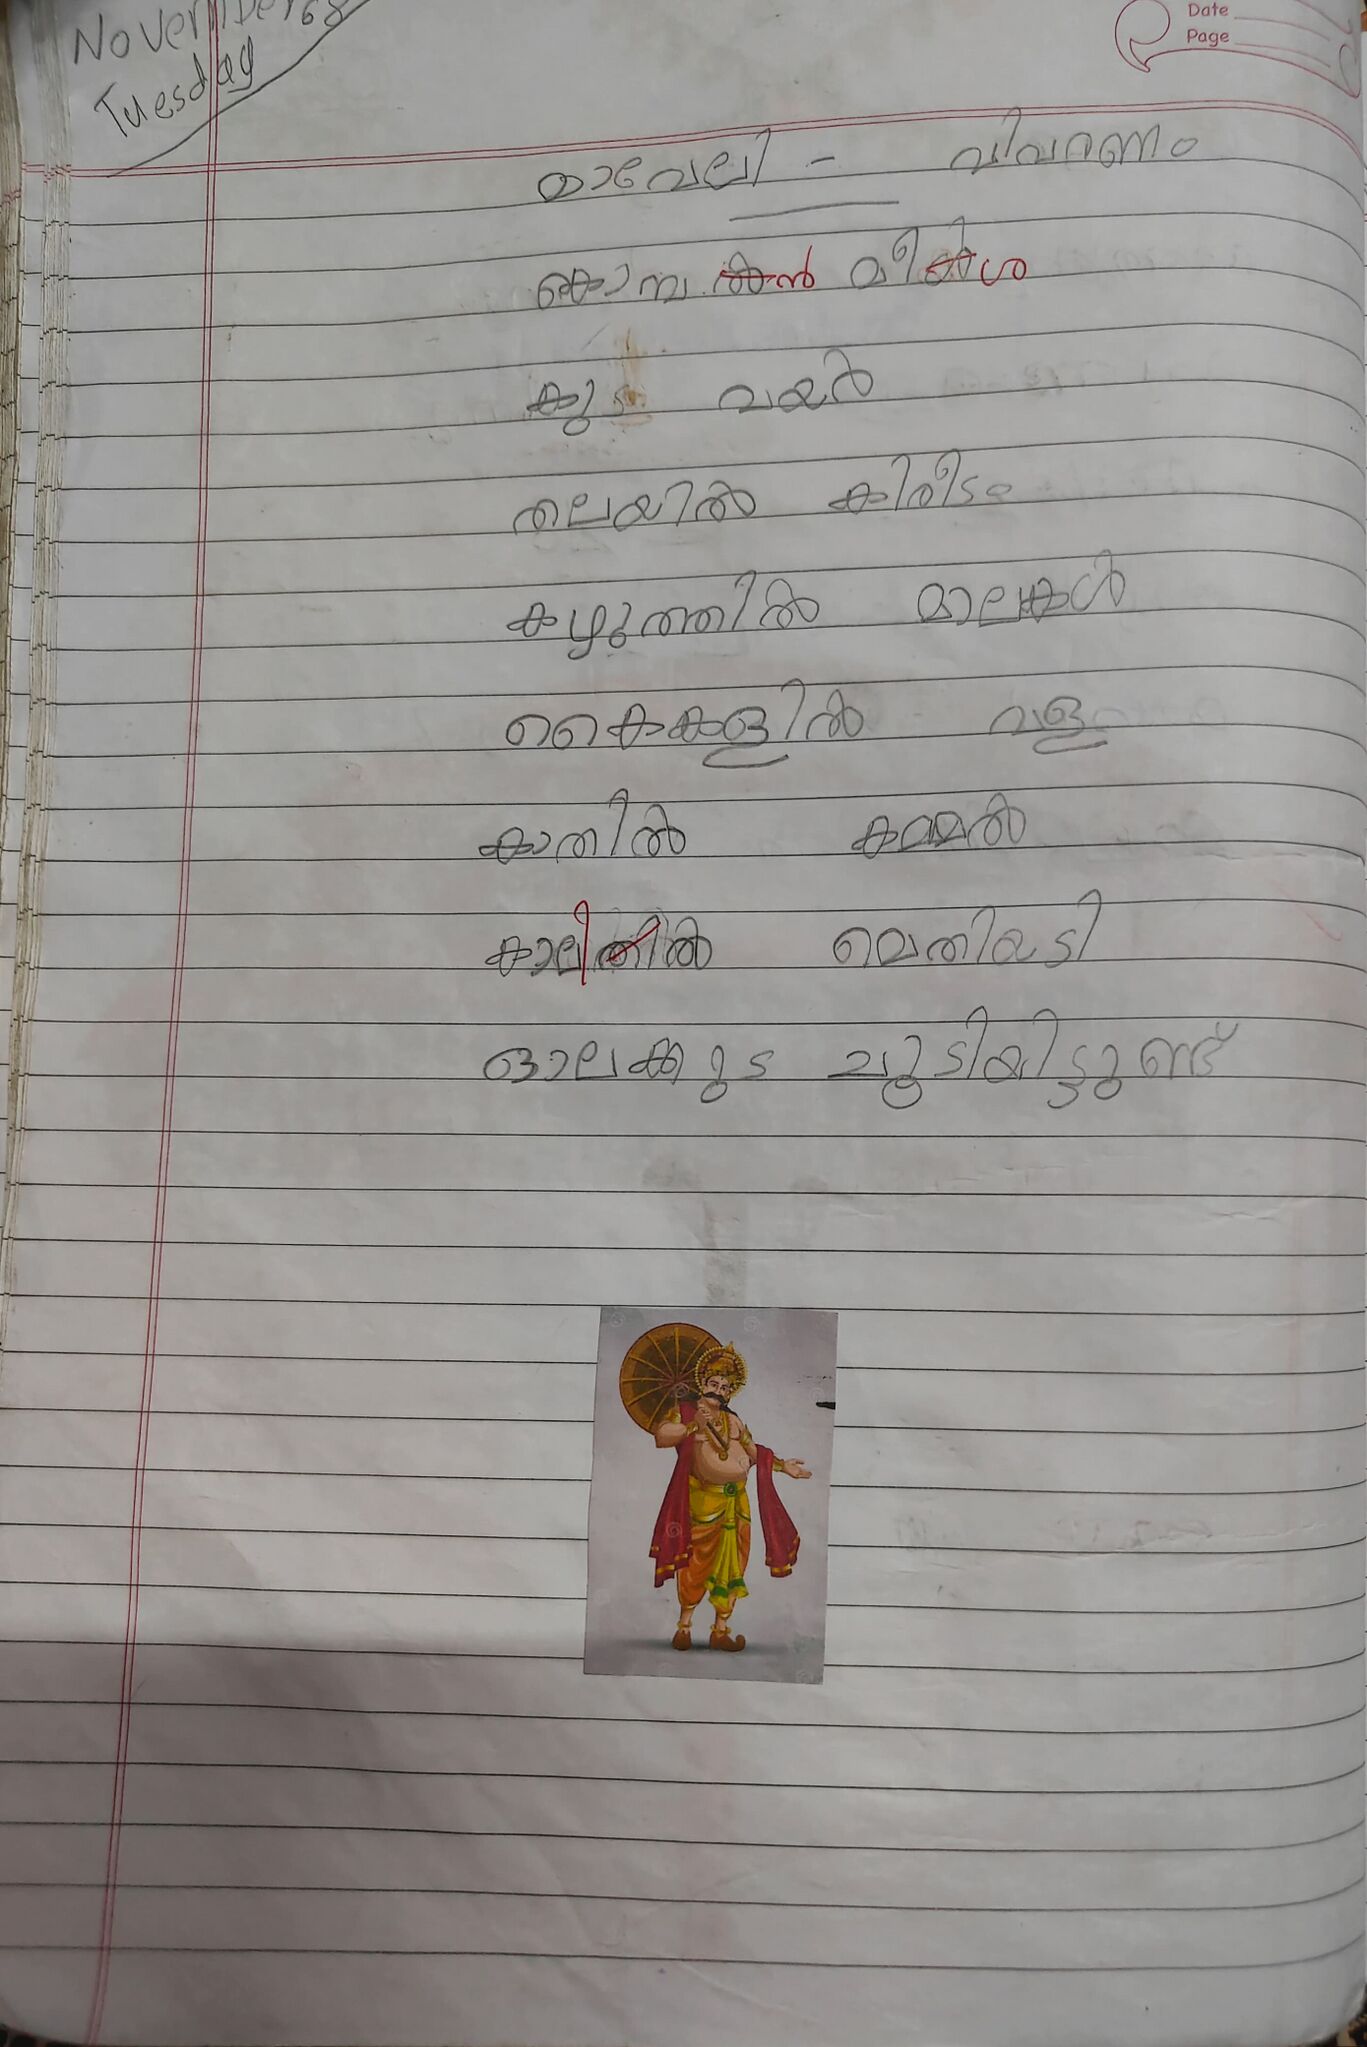 Date
Page
Tuesday
മാവേലി - വിവരണം
കൊമ്പൻ മീശ
കുട വയർ
തലയിൽ കിരീടം
കഴുത്തിൽ മാലകൾ
കൈകളിൽ വള
കാതിൽ കമ്മൽ
കാലിൽ മെതിയടി
ഓലക്കുട ചൂടിയിട്ടുണ്ട്